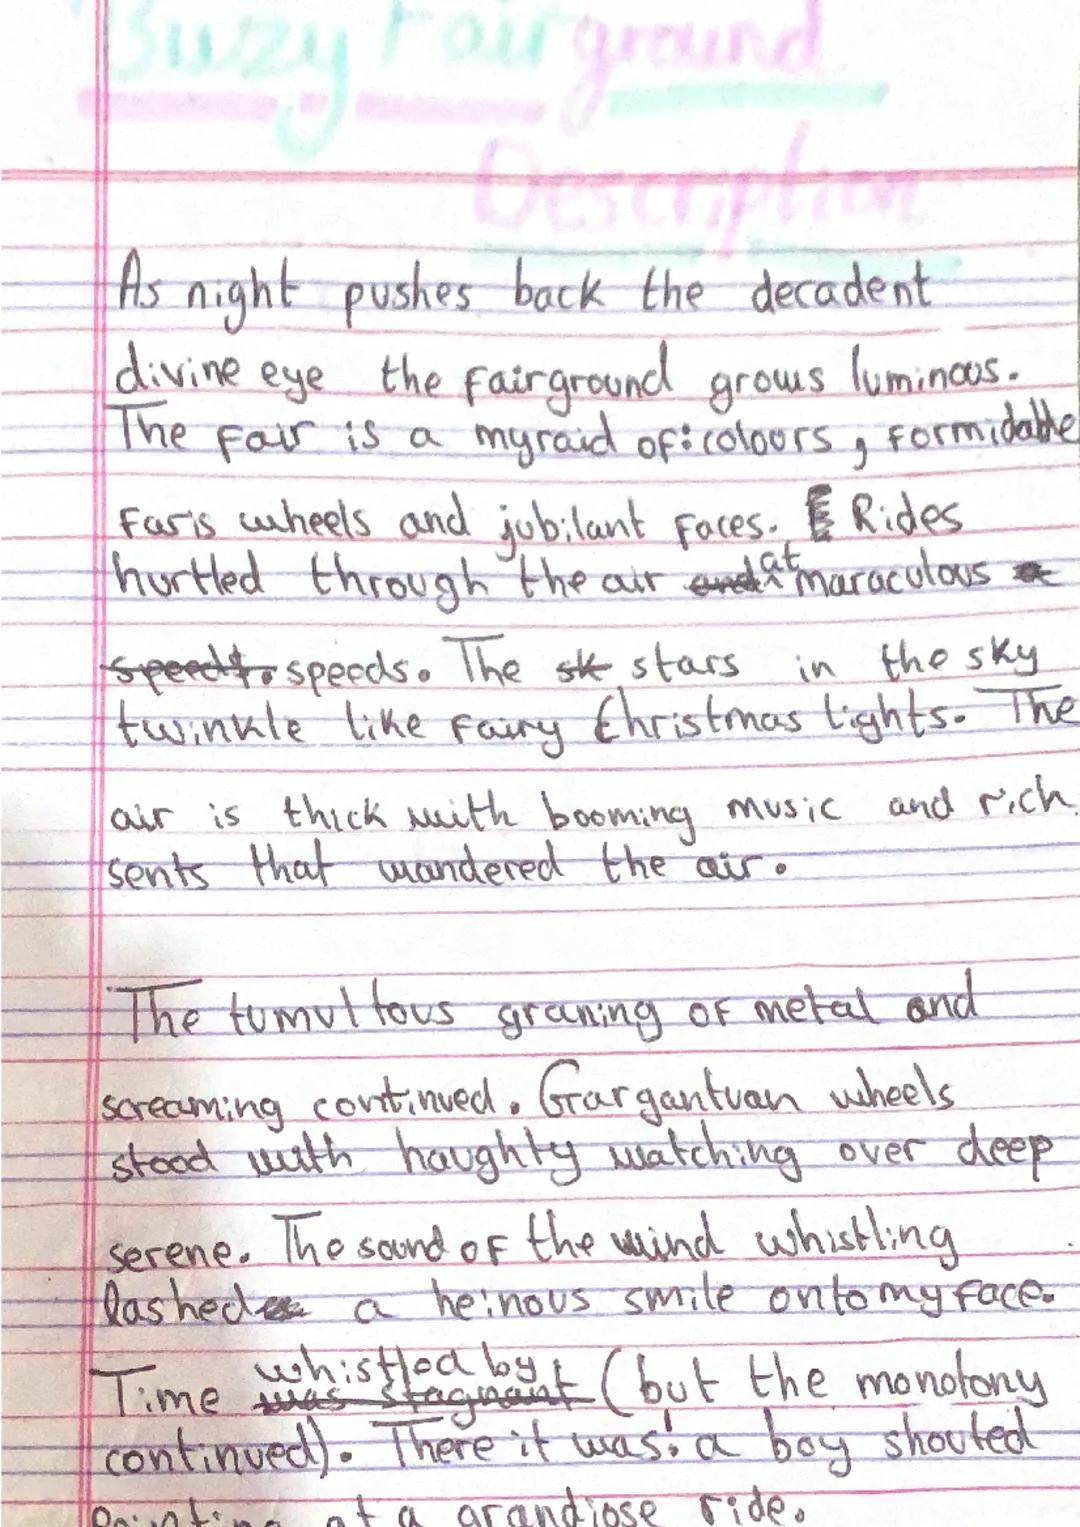 Buzzy Fairground
Description
As night pushes back the decadent
divine eye the fairground grows luminous.
The fair is a myraid of: colours, formidable
faris wheels and jubilant faces. Rides
hurtled through the air at maraculous
speeds. The stars in the sky
twinkle like fairy Christmas lights. The
air is thick with booming music and rich
sents that wandered the air.
The tumultous graning of metal and
screaming continued. Gargantuan wheels
stood with haughty watching over deep
serene. The sound of the wind whistling
lashed a heinous smile onto my face.
Time whistled by (but the monotony
continued). There it was: a boy shouted
Pointing at a grandiose ride.